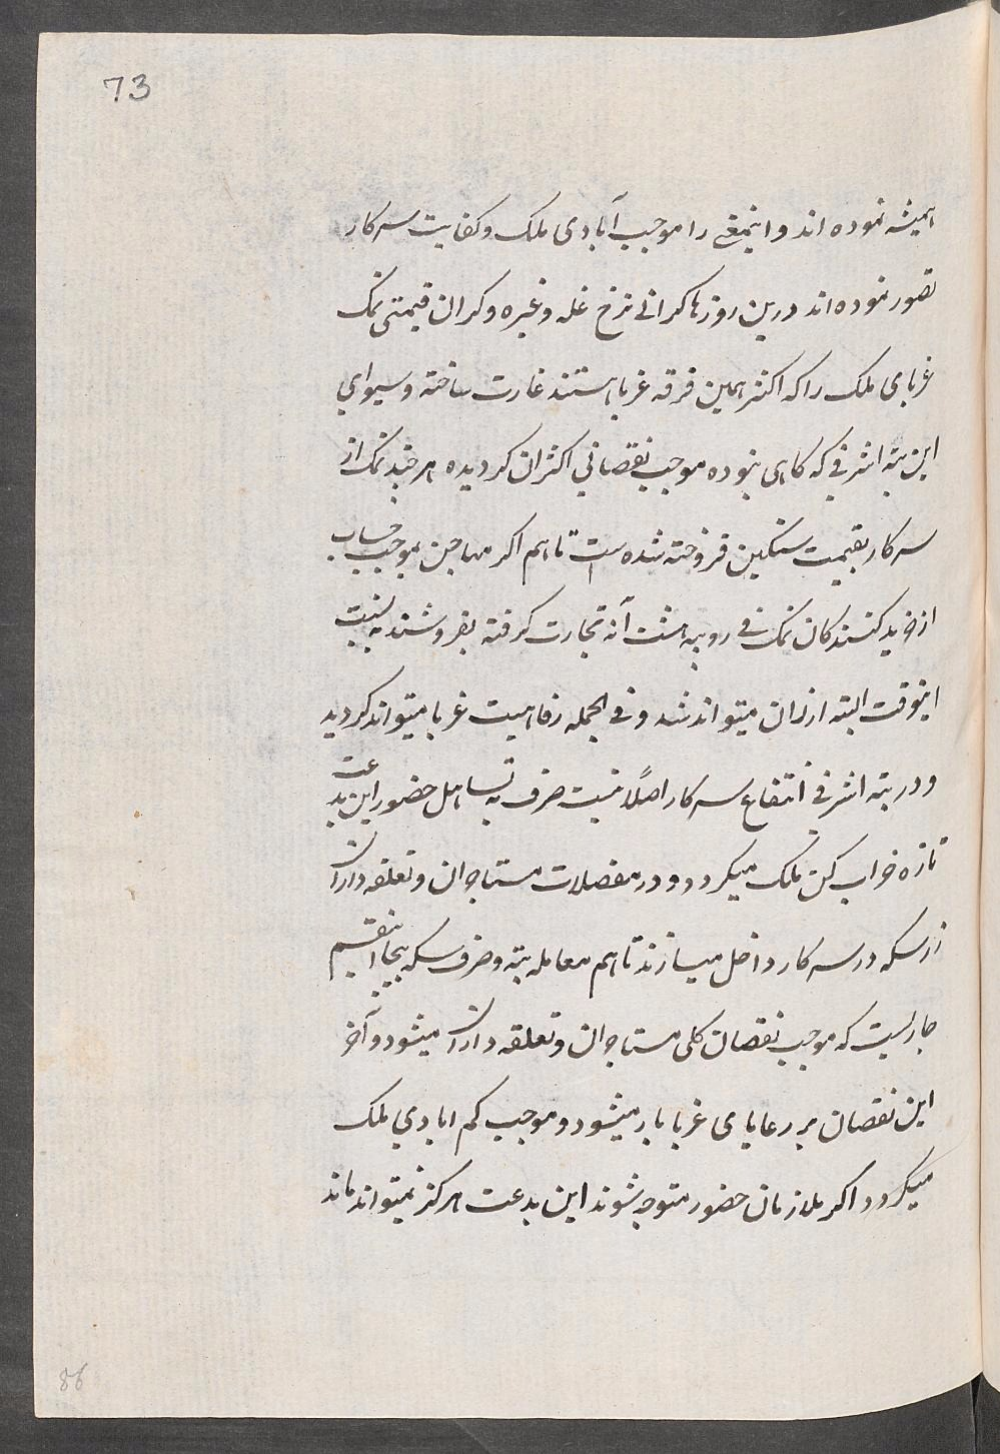 73
همیشه نموده اند و اینمعنی را موجب آبادی ملک و کفایت سرکار
تصور نموده اند درین روزها کرانی نرخ غله و غیره و کران قیمتی نمک
غربای ملک را که اکثر همین فرقه غربا هستند غارت ساخته و سیوای
این بته اشرفی که کاهی نبوده موجب نقصانی اکثران کردیده هر چند نمک از
سرکار بقیمت سنکین فروخته شده است تا هم اکر مهاجن بموجب حساب
از خرید کنندکان نمک فی روپیه هشت آنه تجارت کرفته بفروشند به نسبت
اینوقت البته ارزان میتواند شد و فی الجمله رفاهیت غربا میتواند کردید
و در بته اشرفی انتفاع سرکار اصلاً نیست صرف به تساهل حضور این بدعت
تازه خراب کن ملک میکردد و در مفصلات مستاجران و تعلقه داران
زر سکه در سرکار داخل میسازند تا هم معامله بته و صرف سکه بیجا بقسم
جاریست که موجب نقصان کلی مستاجران و تعلقه داران میشود و آخر
این نقصان بر رعایای غربا بار میشود و موجب کم ابادی ملک
میکردد اکر ملازمان حضور متوجه شوند این بدعت هرکز نمیتواند ماند
86